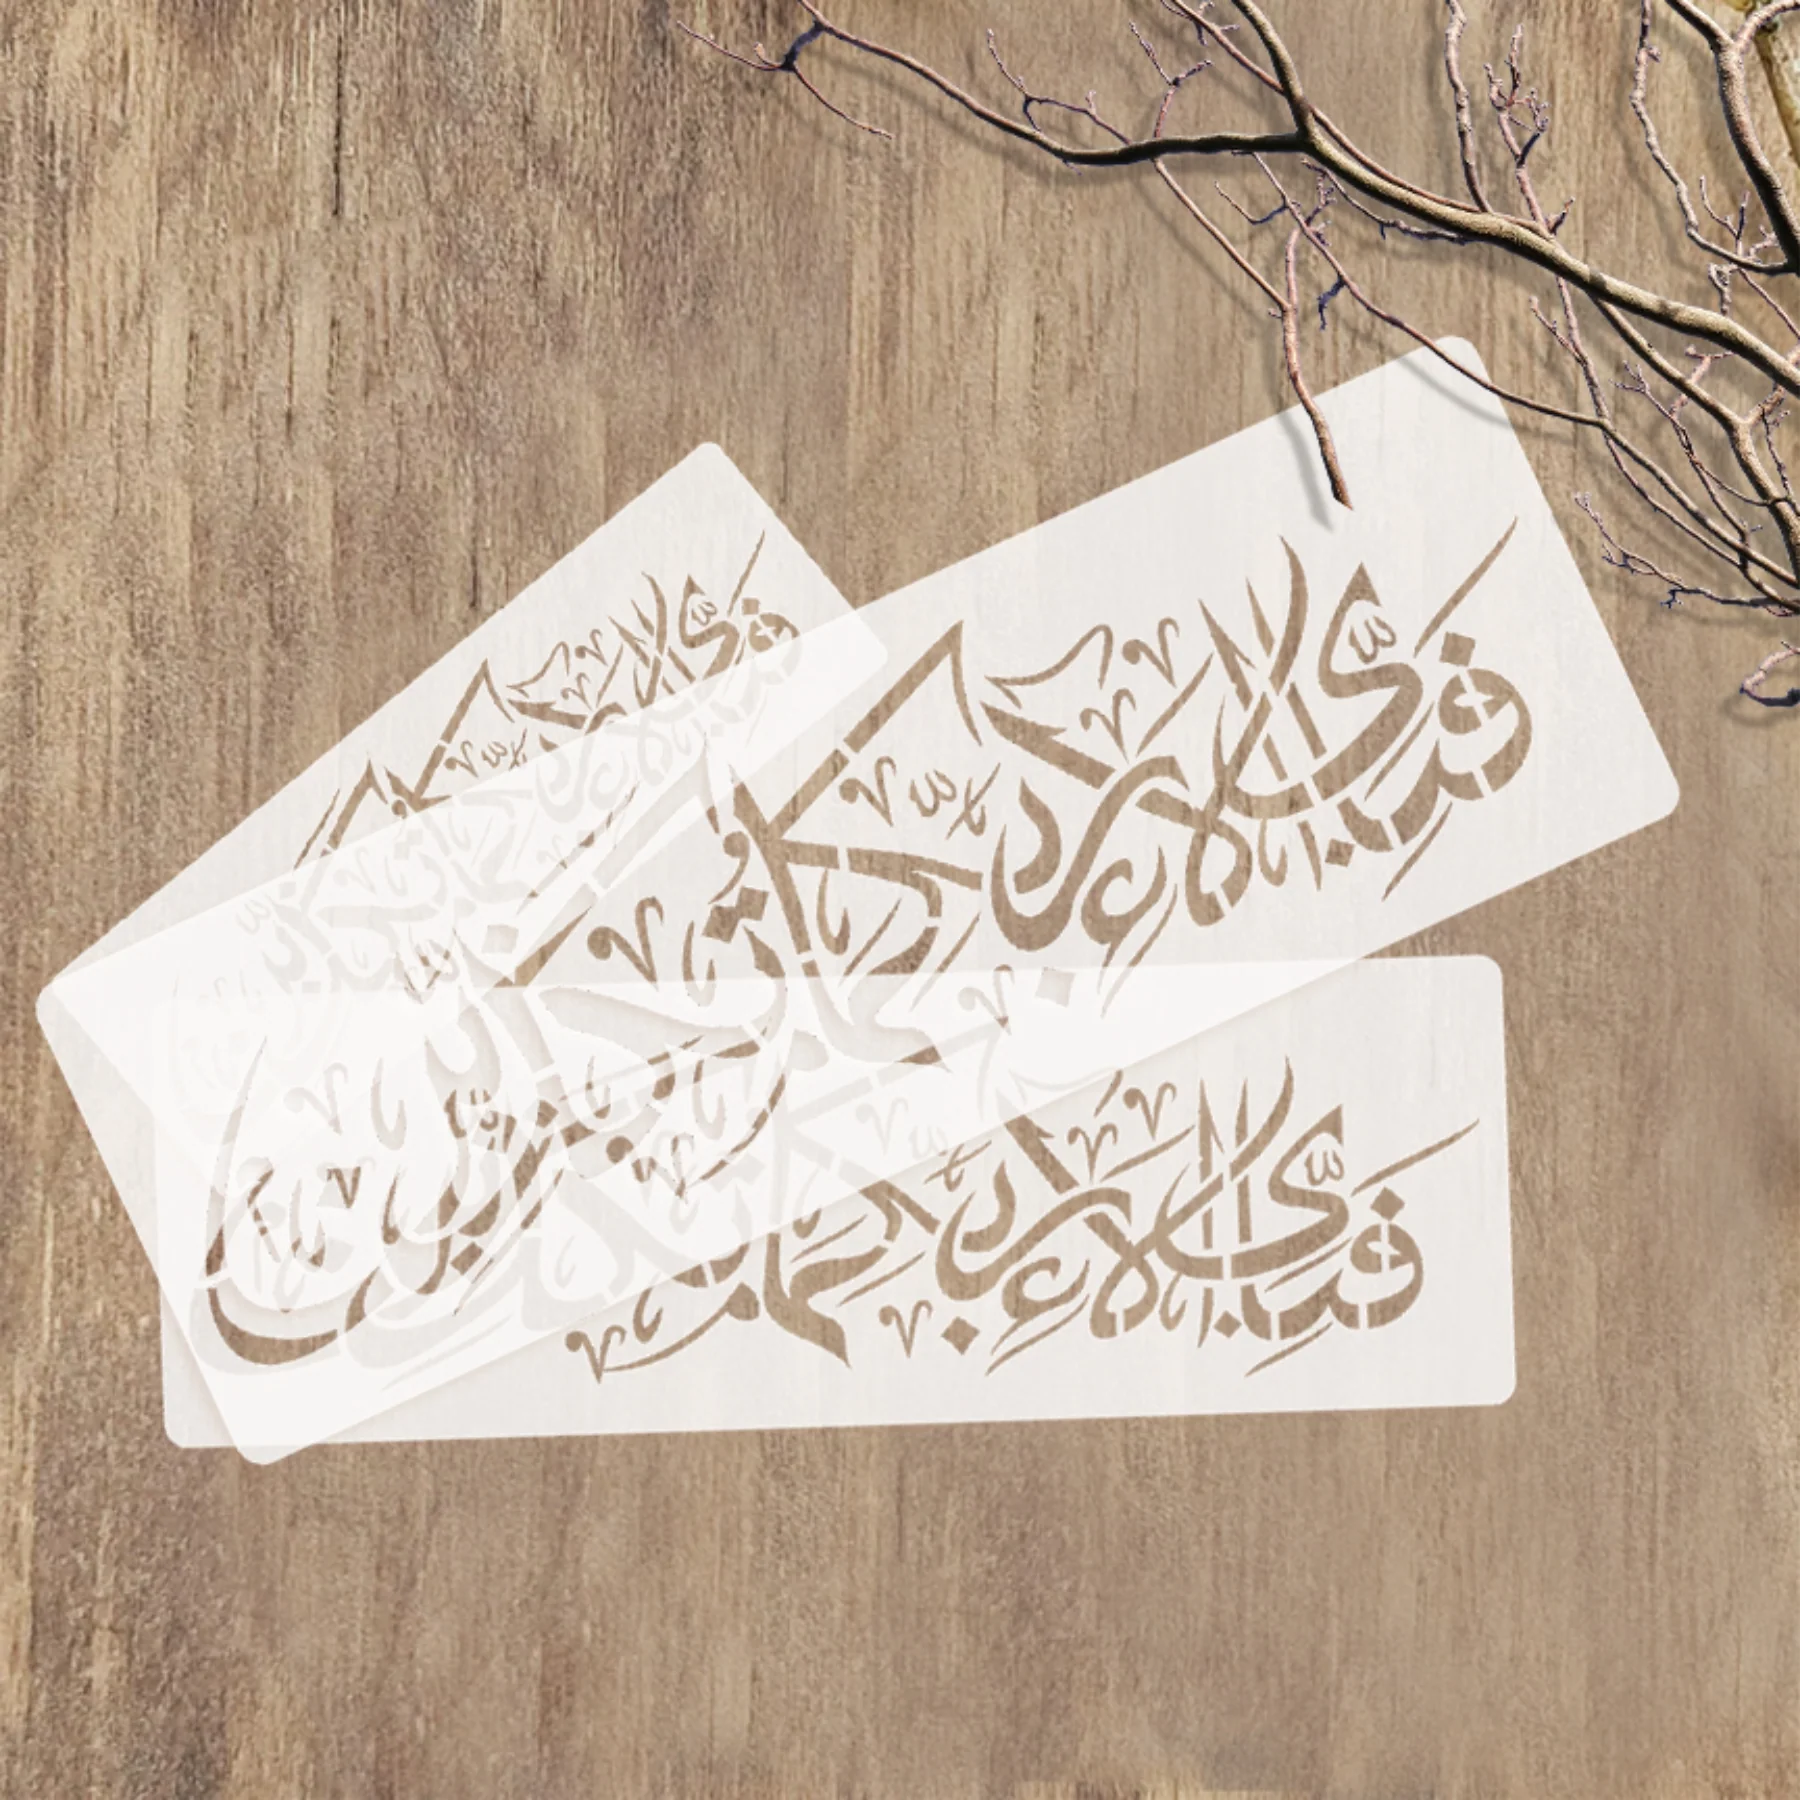 فبأي آلاء ربكما تكذبان
فبأي آلاء ربكما تكذبان
فبأي آلاء ربكما